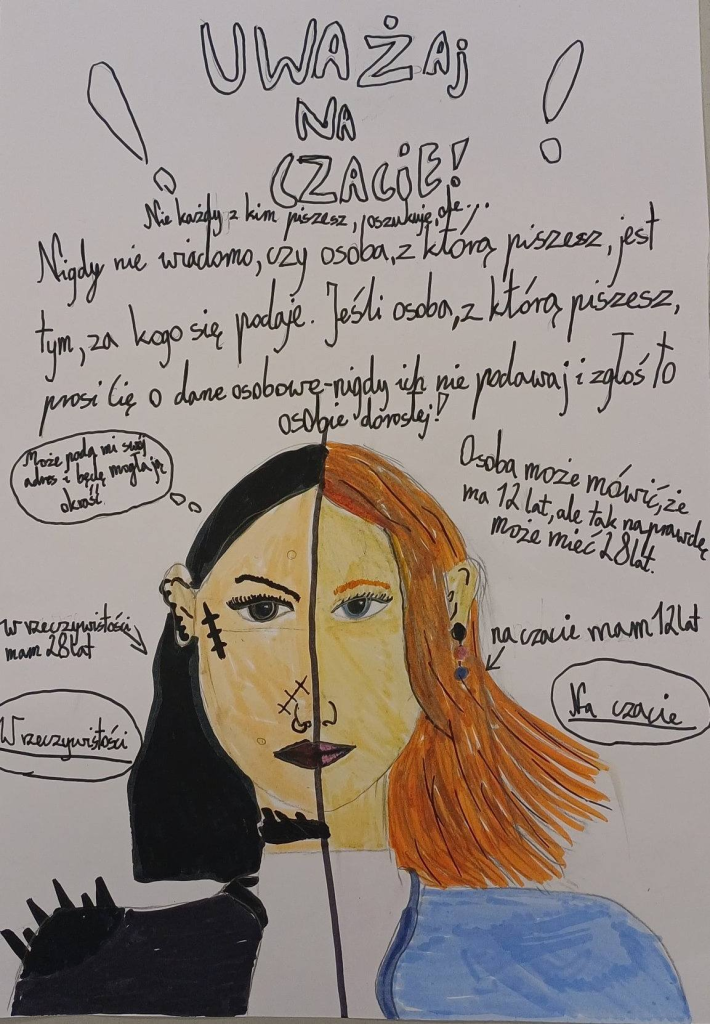 UWAŻAj
NA
CZACIE!
Nie każdy z kim piszesz, poszukuje, ale...
Nigdy nie wiadomo, czy osoba, z którą piszesz, jest
tym, za kogo się podaje. Jeśli osoba, z którą piszesz,
prosi Cię o dane osobowe-nigdy ich nie podawaj i zgłoś to
osobie dorosłej!
Może poda mi swój
adres i będę mogła ją
okraść.
Osoba może mówić, że
ma 12 lat, ale tak naprawdę
może mieć 28 lat.
w rzeczywistości
mam 28 lat
na czacie mam 12 lat
W rzeczywistości
Na czacie